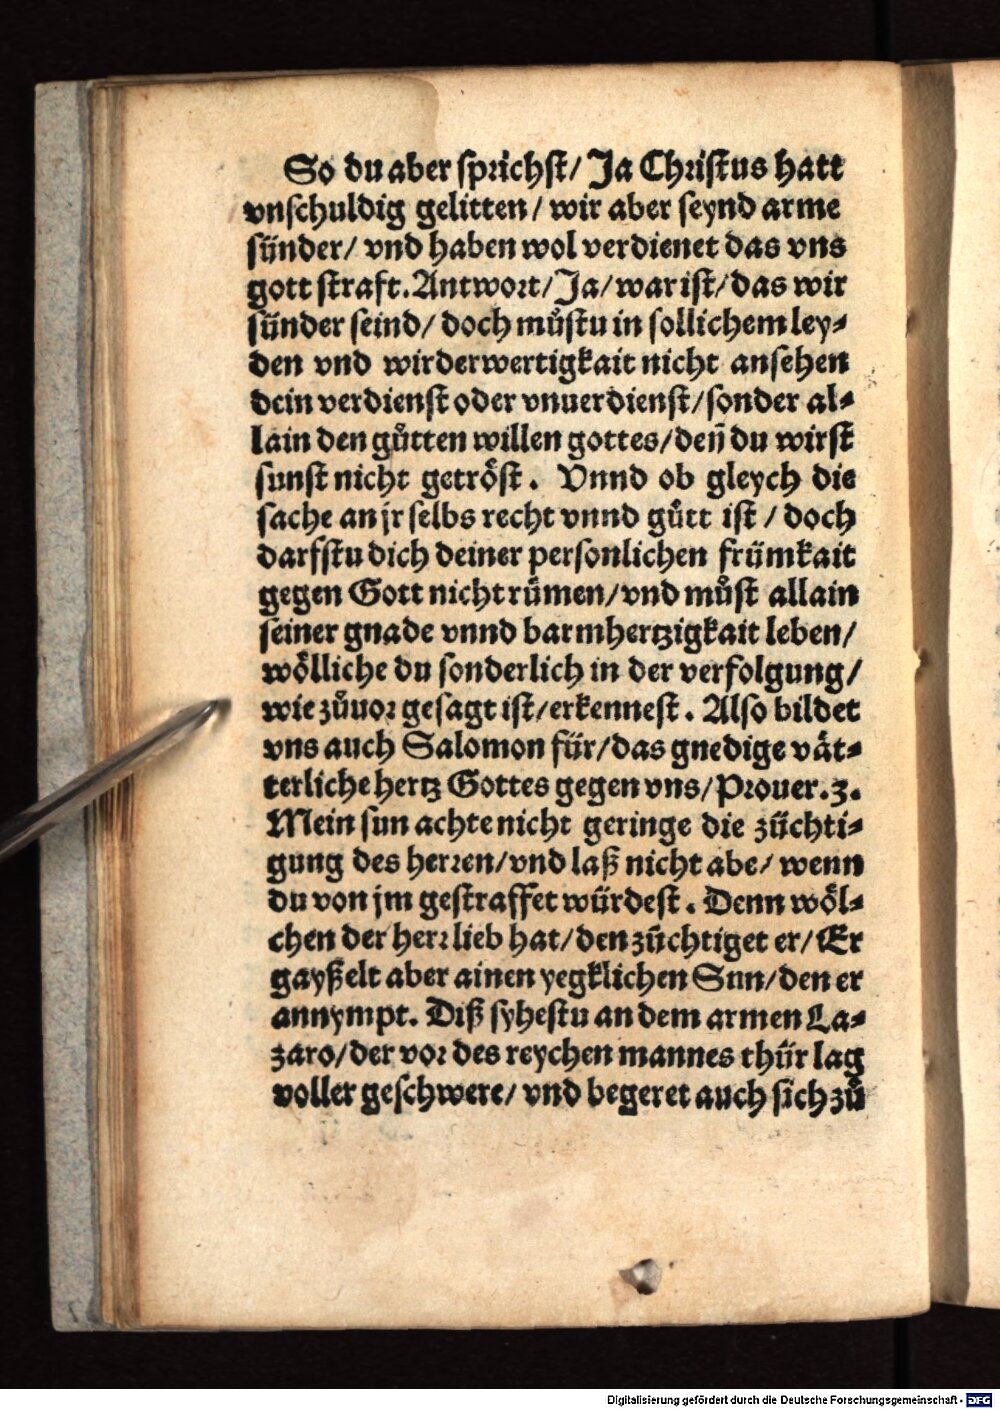 So du aber sprichst/ Ja Christus hatt
vnschuldig gelitten/ wir aber seynd arme
sünder/ vnd haben wol verdienet das vns
gott straft. Antwort/ Ja/ war ist/ das wir
sünder seind/ doch můstu in sollichem ley⸗
den vnd wirderwertigkait nicht ansehen
dein verdienst oder vnuerdienst/ sonder al⸗
lain den gůtten willen gottes/ deñ du wirst
sunst nicht getröst. Vnnd ob gleych die
sache an jr selbs recht vnnd gůtt ist/ doch
darfstu dich deiner personlichen frümkait
gegen Gott nicht rümen/ vnd můst allain
seiner gnade vnnd barmhertzigkait leben/
wölliche du sonderlich in der verfolgung/
wie zůuor gesagt ist/ erkennest. Also bildet
vns auch Salomon für/ das gnedige vät⸗
terliche hertz Gottes gegen vns/ Prouer. 3.
Mein sun achte nicht geringe die züchti⸗
gung des herren/ vnd laß nicht abe/ wenn
du von jm gestraffet würdest. Denn wöl⸗
chen der herr lieb hat/ den züchtiget er/ Er
gayßelt aber ainen yegklichen Sun/ den er
annympt. Diß syhestu an dem armen La⸗
zaro/ der vor des reychen mannes thür lag
voller geschwere/ vnd begeret auch sich zů
Digitalisierung gefördert durch die Deutsche Forschungsgemeinschaft - DFG